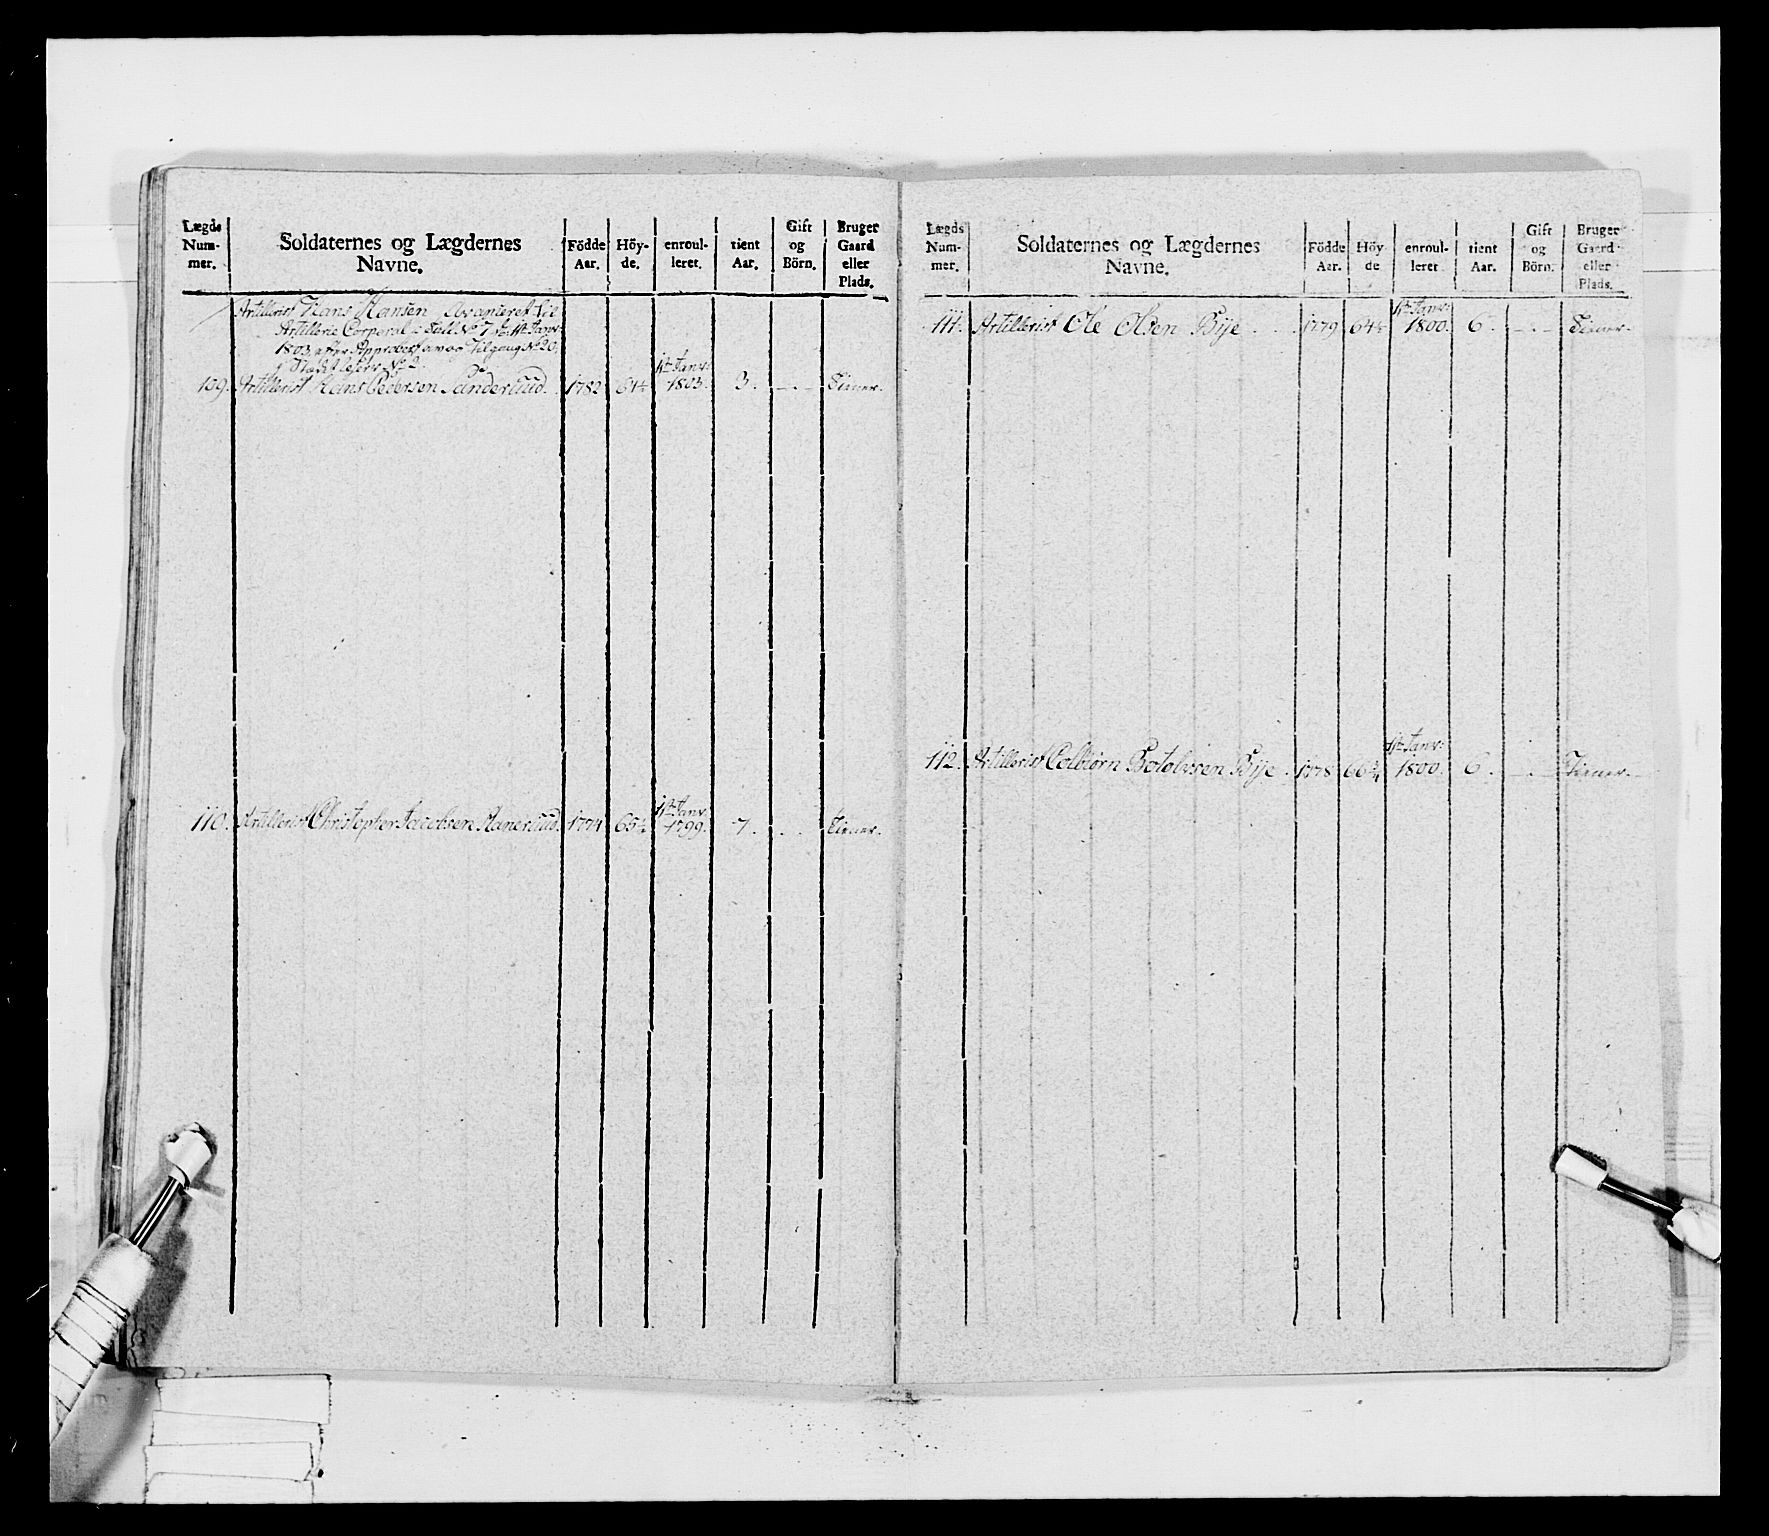 Lægds Num- mer. | Soldaternes og Lægdernes Navne. | Födde Aar. | Höy- de. | enroul- leret. | tient Aar. | Gift og Börn. | Bruger Gaard eller Plads.
Artillerist Hans Hansen Avancieret til
Artillerie Corporal
1803 efter Approberet Tilgang No 20,
109. Artillerist Hans Pedersen 1782 64 1ste Janv: 1803. 3. -.- Tiener.
110. Artillerist Christopher Jacobsen 1774 65 1ste Janv: 1799. 7. -.- Tiener.
Lægds Num- mer. | Soldaternes og Lægdernes Navne. | Födde Aar. | Höy de | enroul- leret | tient Aar. | Gift og Börn. | Bruger Gaard eller Plads.
111. Artillerist Ole Olsen Bije 1779 64 1ste Janv: 1800. 6. -.- Tiener.
112. Artillerist Colbiørn Botolvsen Bije 1778 66 1ste Janv: 1800. 6. -.- Tiener.